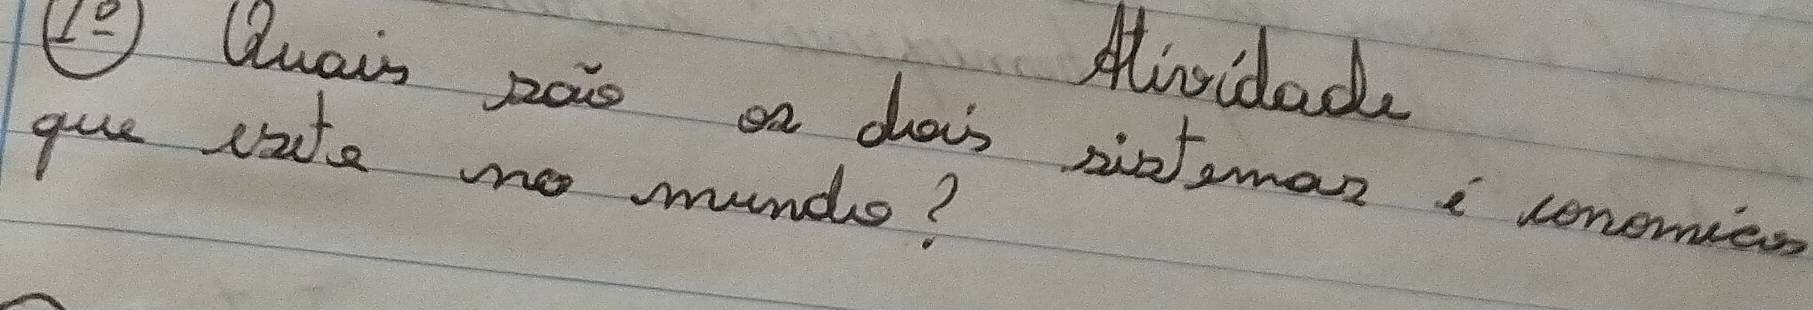 Atividade
1º) Quais são os dois sistemas i conomicos
que exite no mundo?